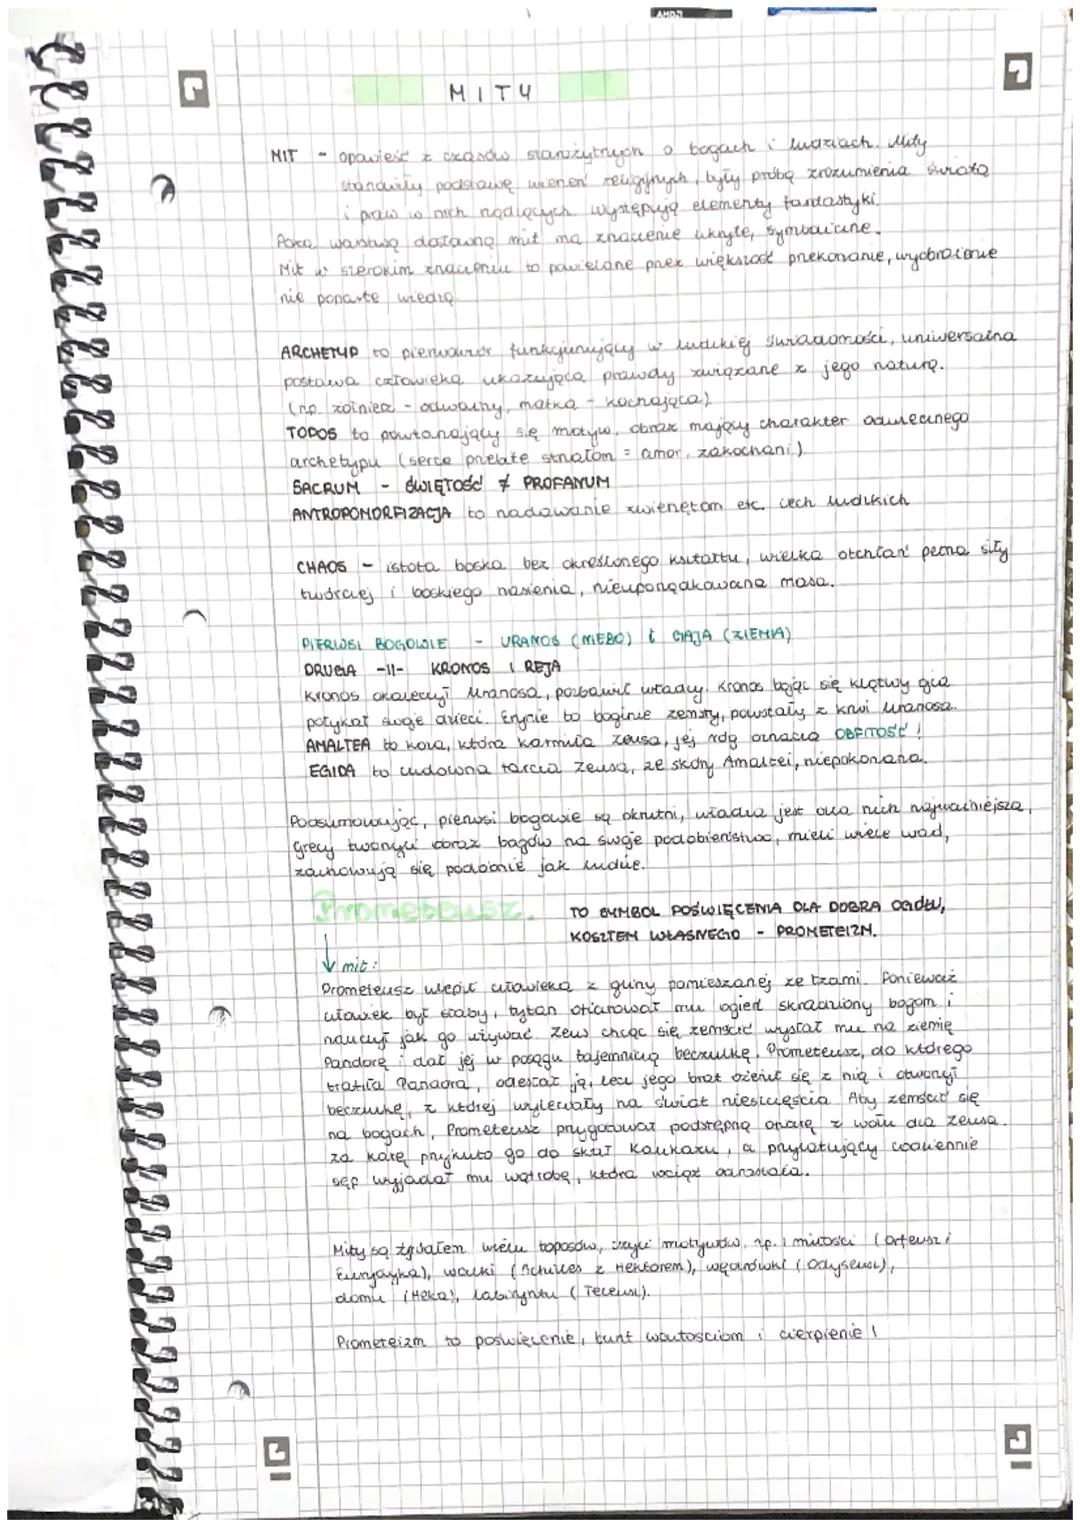 MITY
MIT - opowieść z czasów starożytnych o bogach i ludziach. Mity
stanowiły podstawę wierzeń religijnych, były próbą zrozumienia świata
i praw w nich rządzących. występują elementy fantastyki.
Poza warstwą dosłowną mit ma znaczenie ukryte, symboliczne.
Mit w szerokim znaczeniu to powielane przez większość przekonanie, wyobrażenie
nie poparte wiedzą.
ARCHETYP to pierwowzór funkcjonujący w ludzkiej świadomości, uniwersalna
postawa człowieka ukazująca prawdy związane z jego naturą.
(np. żołnierz - odważny, matka - kochająca)
TOPOS to powtarzający się motyw, obraz mający charakter odwiecznego
archetypu (serce przebite strzałom = amor, zakochani)
SACRUM - ŚWIĘTOŚĆ ≠ PROFANUM
ANTROPOMORFIZACJA to nadawanie zwierzętom etc. cech ludzkich
CHAOS - istota boska bez określonego kształtu, wielka otchłań pełna siły
twórczej i boskiego nasienia, nieuporządkowana masa.
PIERWSI BOGOWIE - URANOS (NIEBO) i GAJA (ZIEMIA)
DRUGIA -II- KRONOS I REJA
Kronos okaleczył Uranosa, pozbawił władzy. Kronos bojąc się klątwy ojca
połykał swoje dzieci. Erynie to boginie zemsty, powstały z krwi Uranosa.
AMALTEA to koza, która karmiła Zeusa, jej róg oznacza OBFITOŚĆ!
EGIDA to cudowna tarcza Zeusa, ze skóry Amaltei, niepokonana.
Podsumowując, pierwsi bogowie są okrutni, władza jest dla nich najważniejsza,
Grecy tworzyli obraz bogów na swoje podobieństwo, mieli wiele wad,
zachowują się podobnie jak ludzie.
Prometeusz. TO SYMBOL POŚWIĘCENIA DLA DOBRA OGÓŁU,
KOSZTEM WŁASNEGO - PROMETEIZM.
↓ mit:
Prometeusz ulepił człowieka z gliny pomieszanej ze łzami. Ponieważ
człowiek był słaby, tytan ofiarował mu ogień skradziony bogom i
nauczył jak go używać. Zeus chcąc się zemścić wysłał mu na ziemię
Pandorę i dał jej w posagu tajemniczą beczułkę. Prometeusz, do którego
trafiła Pandora, odesłał ją, lecz jego brat ożenił się z nią i otworzył
beczułkę, z której wyleciały na świat nieszczęścia. Aby zemścić się
na bogach, Prometeusz przygotował podstępną ofiarę z wołu dla Zeusa.
za karę przykuto go do skał Kaukazu, a przylatujący codziennie
sęp wyjadał mu wątrobę, która wciąż odrastała.
Mity są źródłem wielu toposów, czyli motywów, np. miłości (Orfeusz i
Eurydyka), walki (Achilles z Hektorem), wędrówki (Odyseusz),
domu (Itaka), labiryntu (Tezeusz).
Prometeizm to poświęcenie, bunt wartościom i cierpienie!